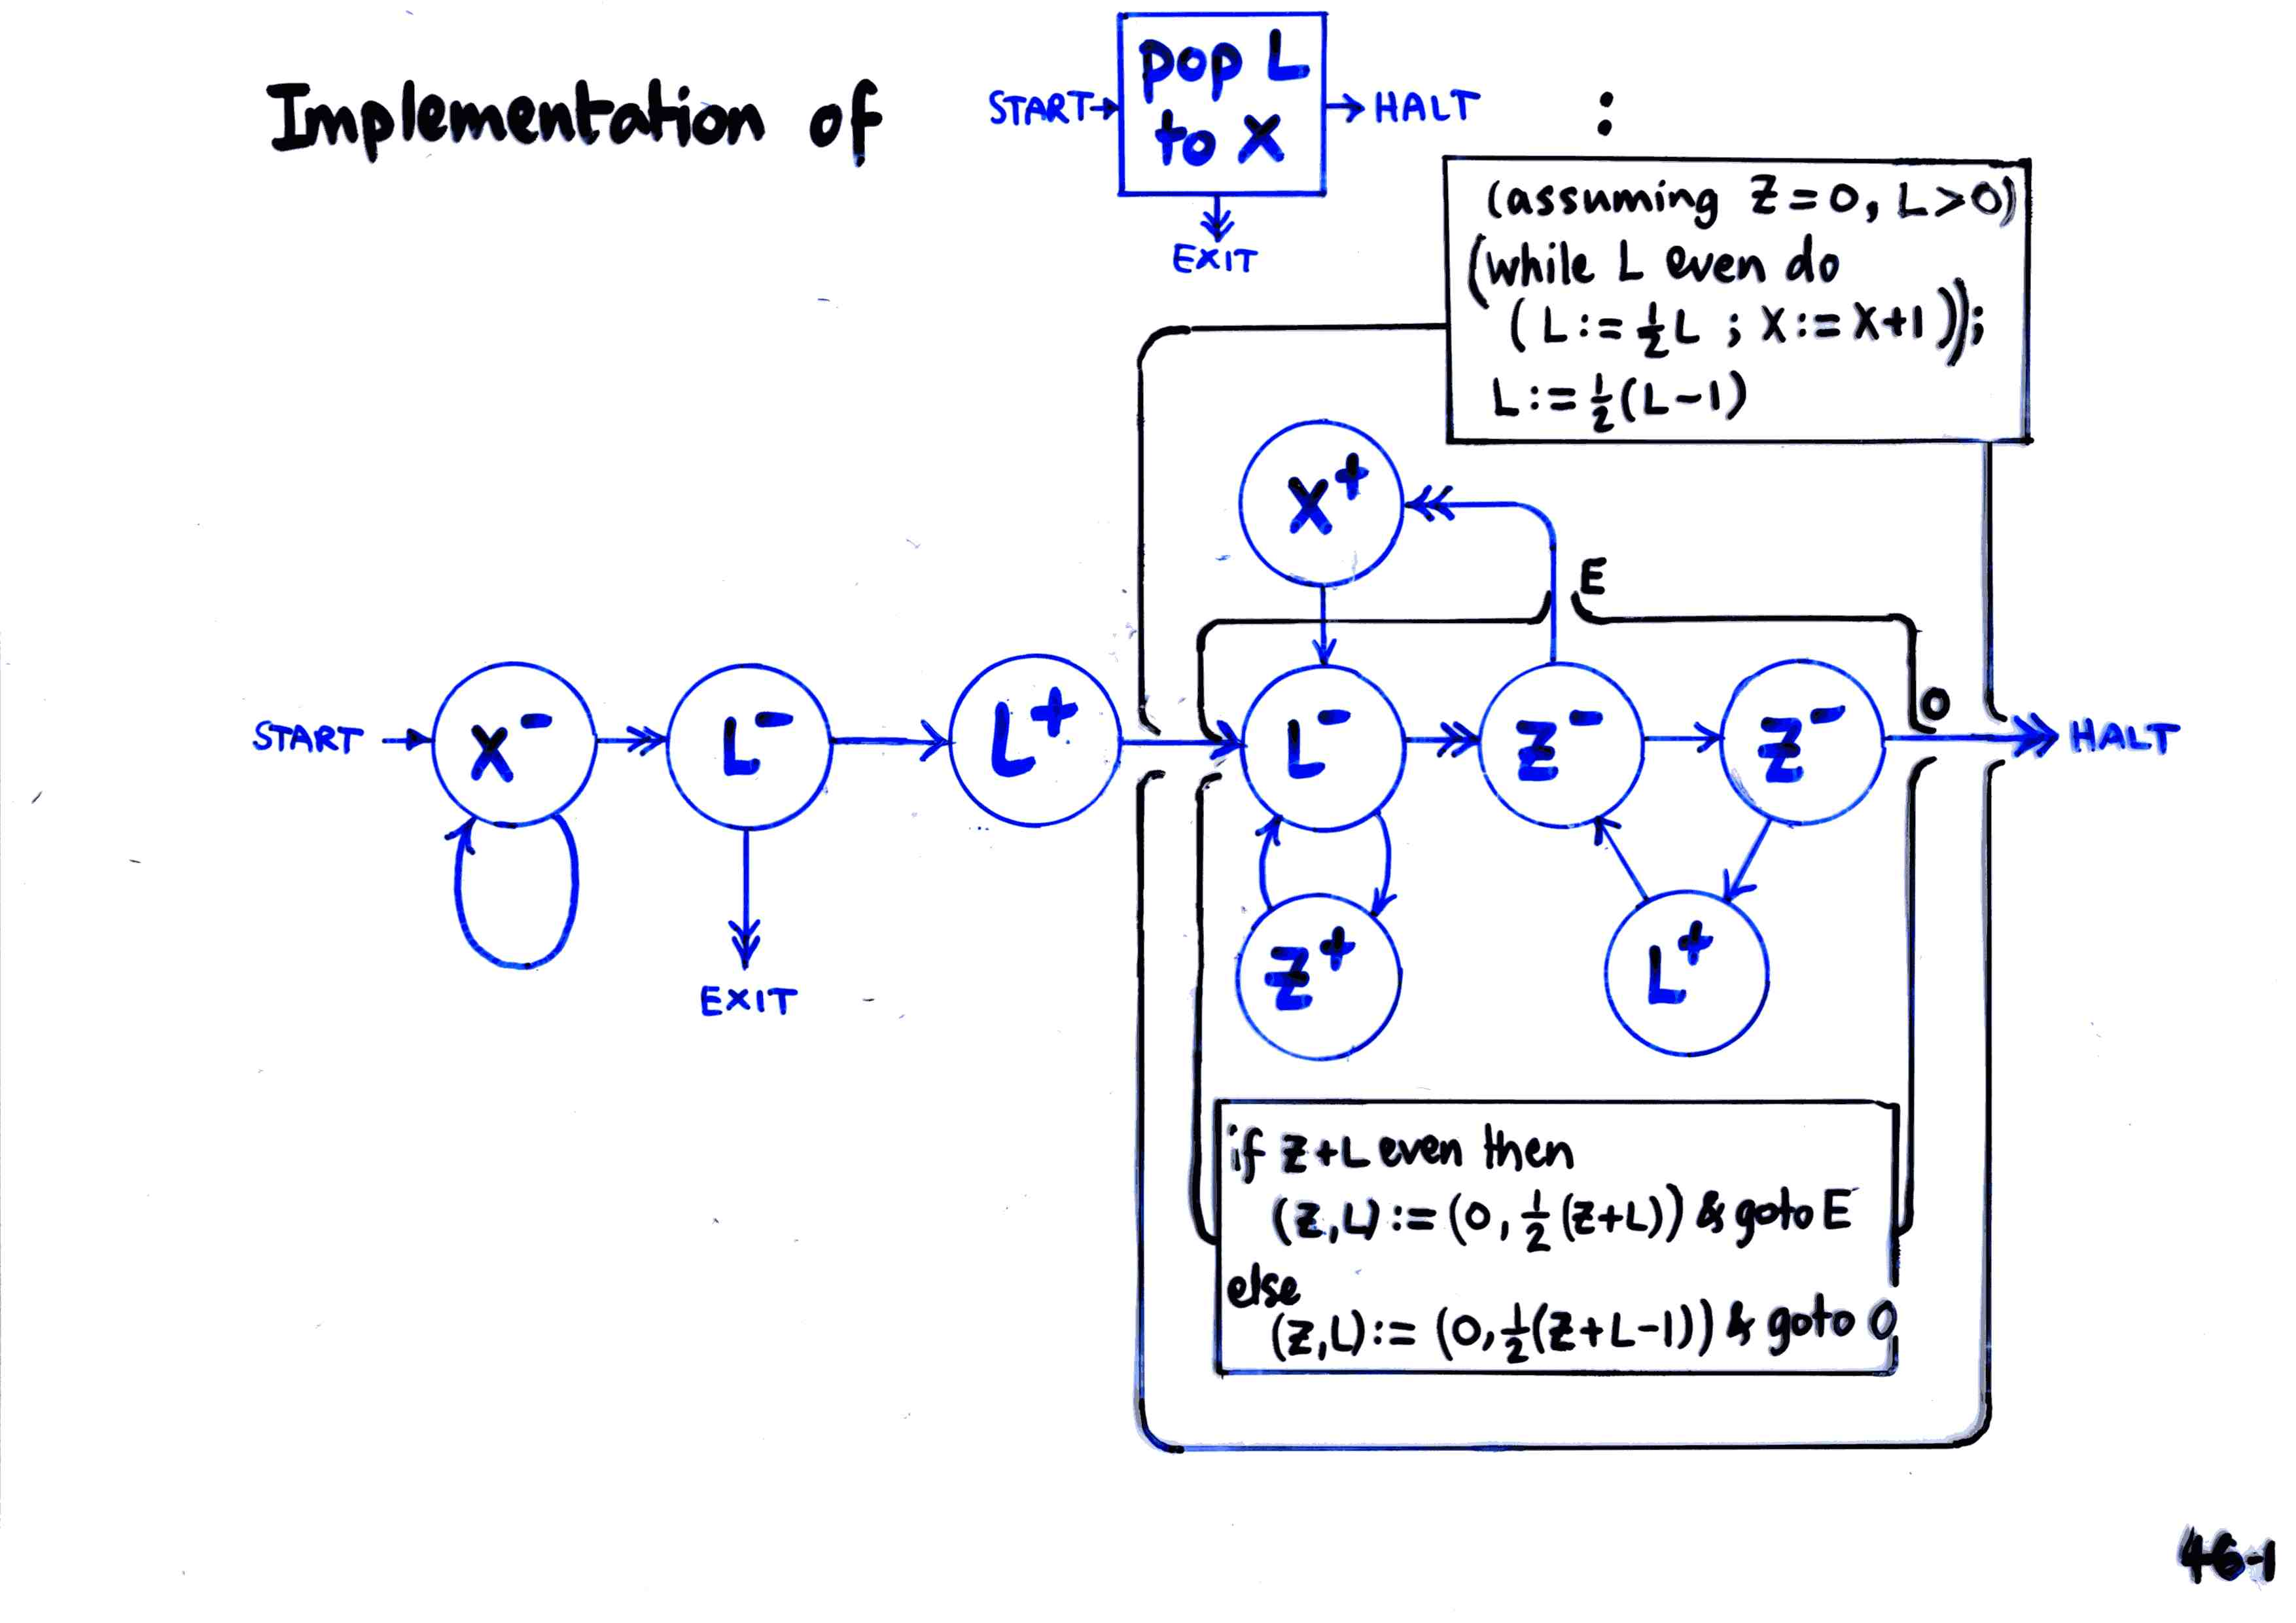 Implementation of
START
pop L
to X
HALT
:
EXIT
(assuming Z=0, L>0)
(while L even do
(L:=½L ; X:=X+1));
L:=½(L-1)
X⁺
E
START
X⁻
L⁻
L⁺
L⁻
Z⁻
Z⁻
O
HALT
EXIT
Z⁺
L⁺
if Z+L even then
(Z,L):=(0,½(Z+L)) & goto E
else
(Z,L):=(0,½(Z+L-1)) & goto O
46-1